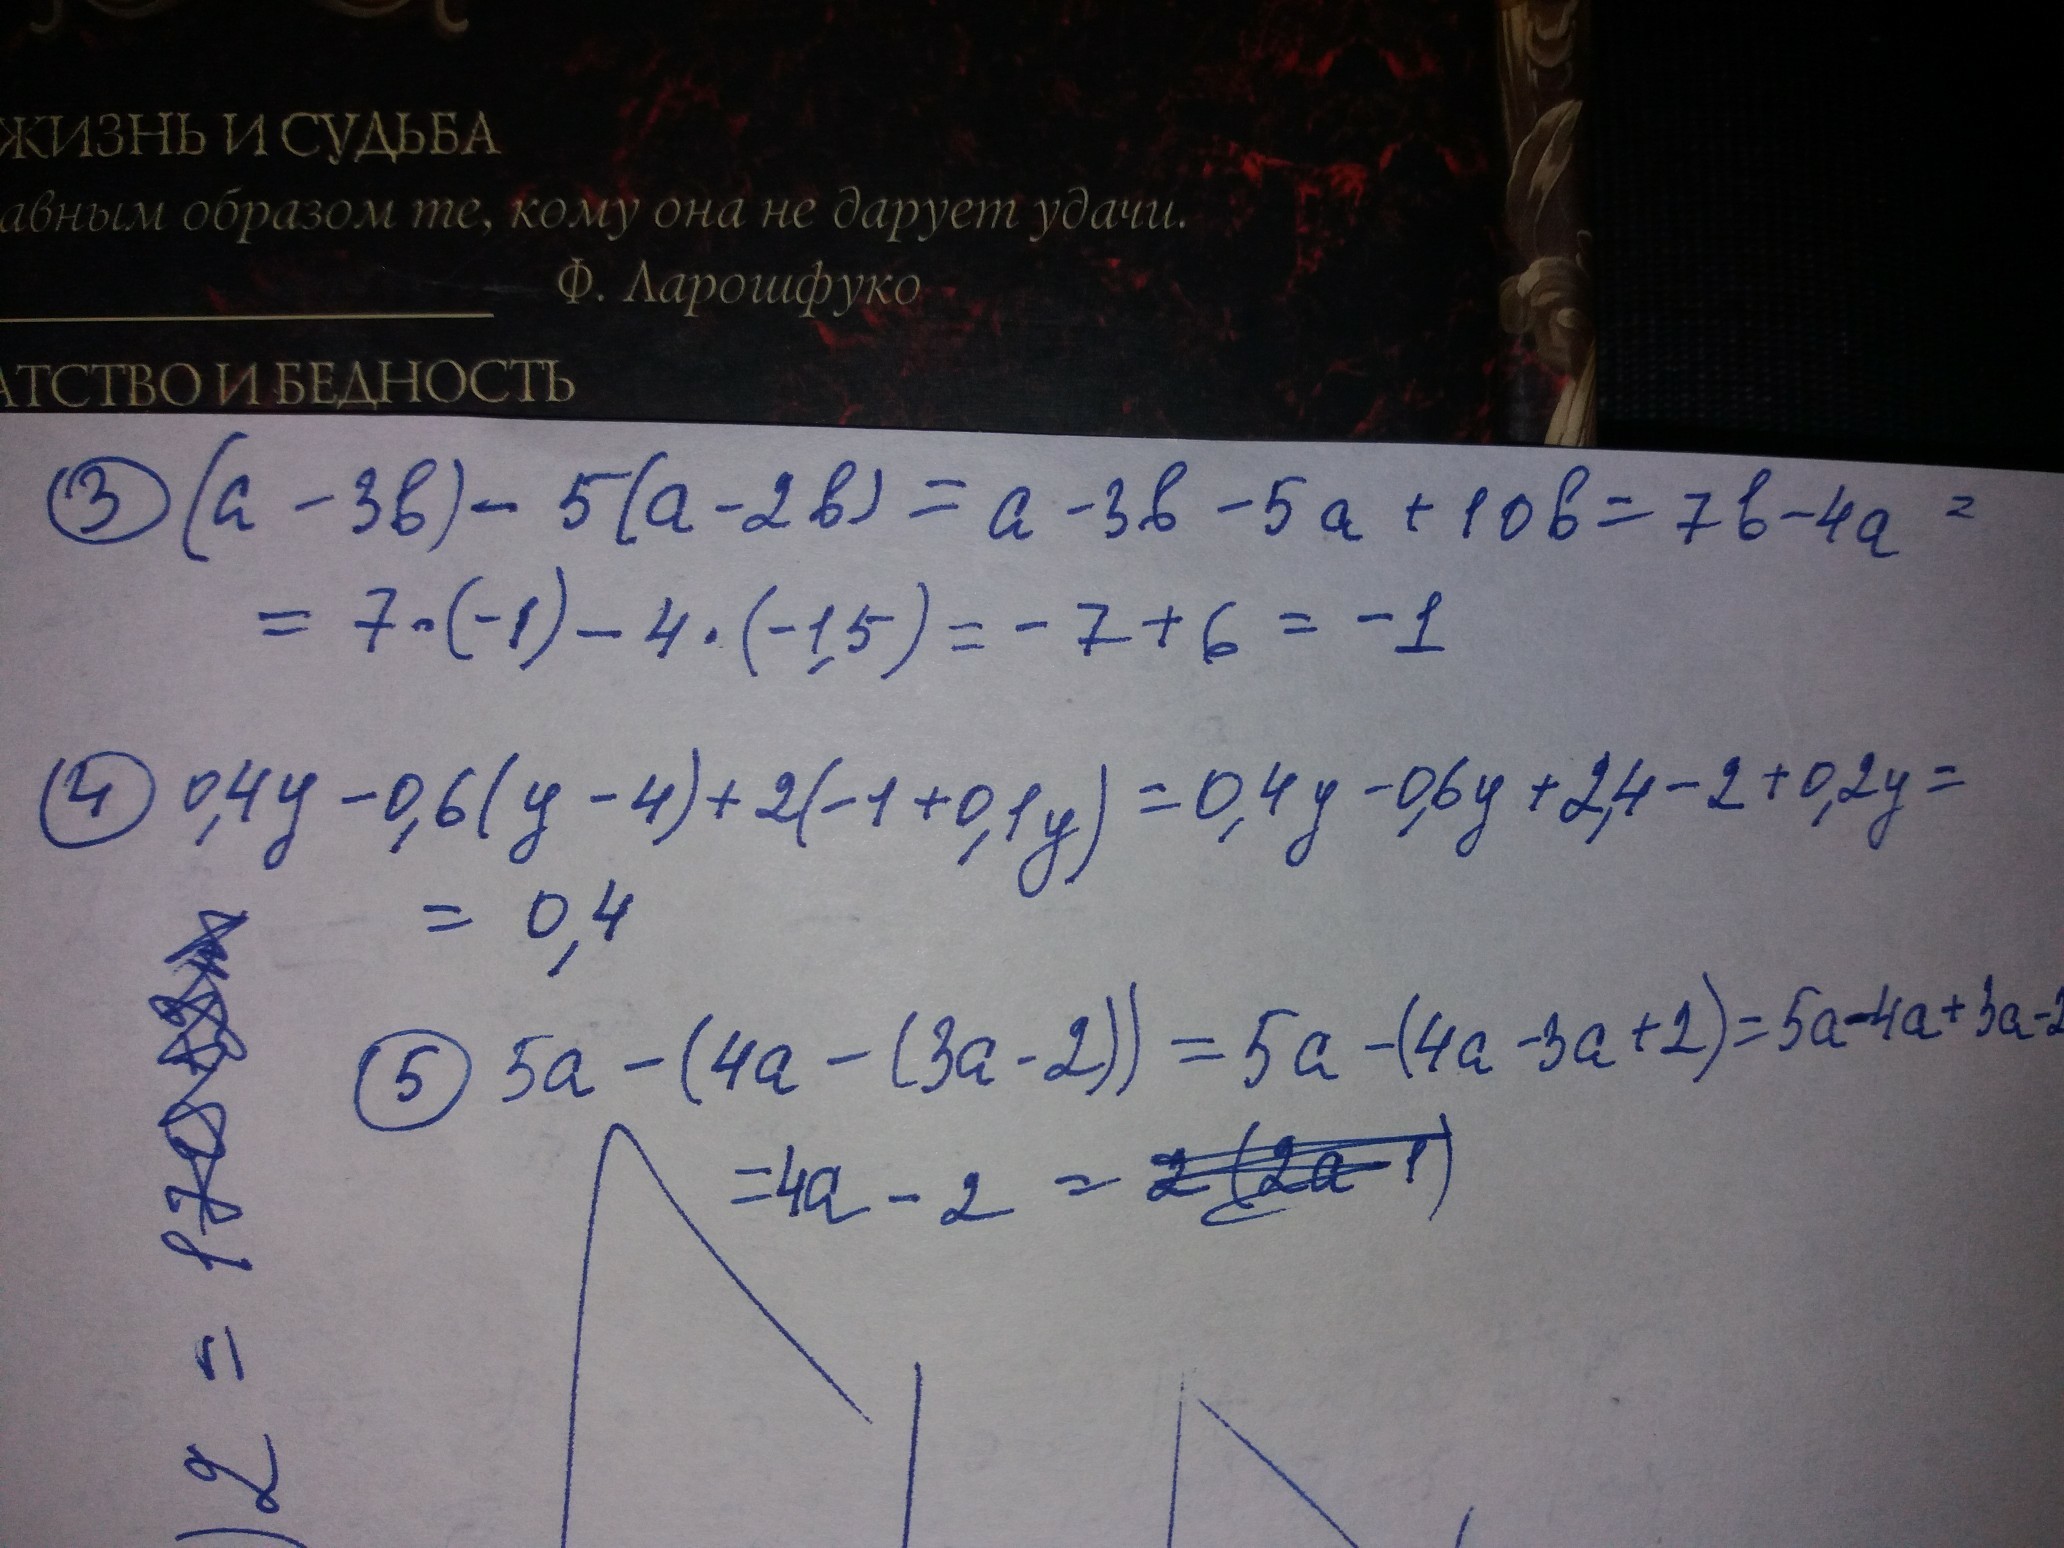 ЖИЗНЬ И СУДЬБА
авным образом те, кому она не дарует удачи.
Ф. Ларошфуко
АТСТВО И БЕДНОСТЬ
③ (a - 3b) - 5(a - 2b) = a - 3b - 5a + 10b = 7b - 4a =
= 7·(-1) - 4·(-1,5) = -7 + 6 = -1
④ 0,4y - 0,6(y - 4) + 2(-1 + 0,1y) = 0,4y - 0,6y + 2,4 - 2 + 0,2y =
= 0,4
⑤ 5a - (4a - (3a - 2)) = 5a - (4a - 3a + 2) = 5a - 4a + 3a - 2
= 4a - 2 = 2(2a - 1)
)2 =